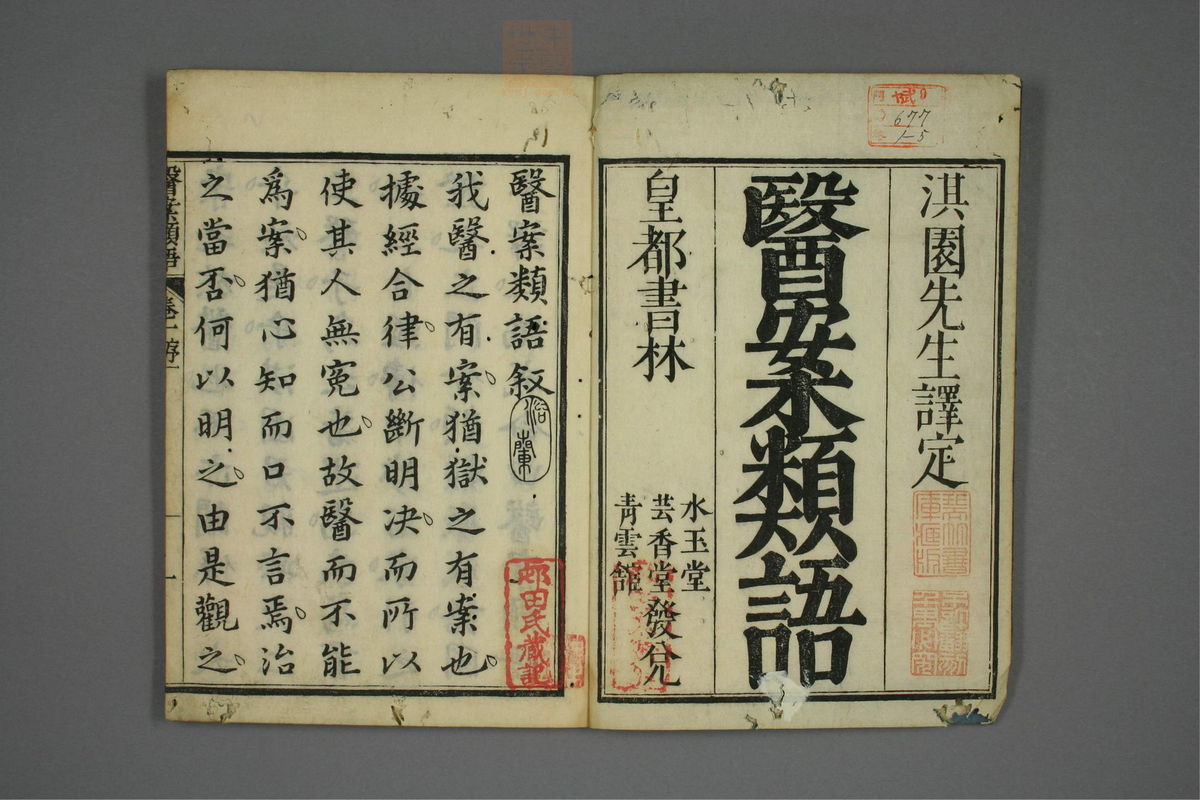 淇園先生譯定
醫案類語
皇都書林
水玉堂
芸香堂發兌
青雲館
677
1-5
醫案類語敘
我醫之有案猶獄之有案也
據經合律公斷明决而所以
使其人無寃也故醫而不能
爲案猶心知而口不言焉治
之當否何以明之由是觀之
醫案類語
卷一序
一
邨田氏藏記